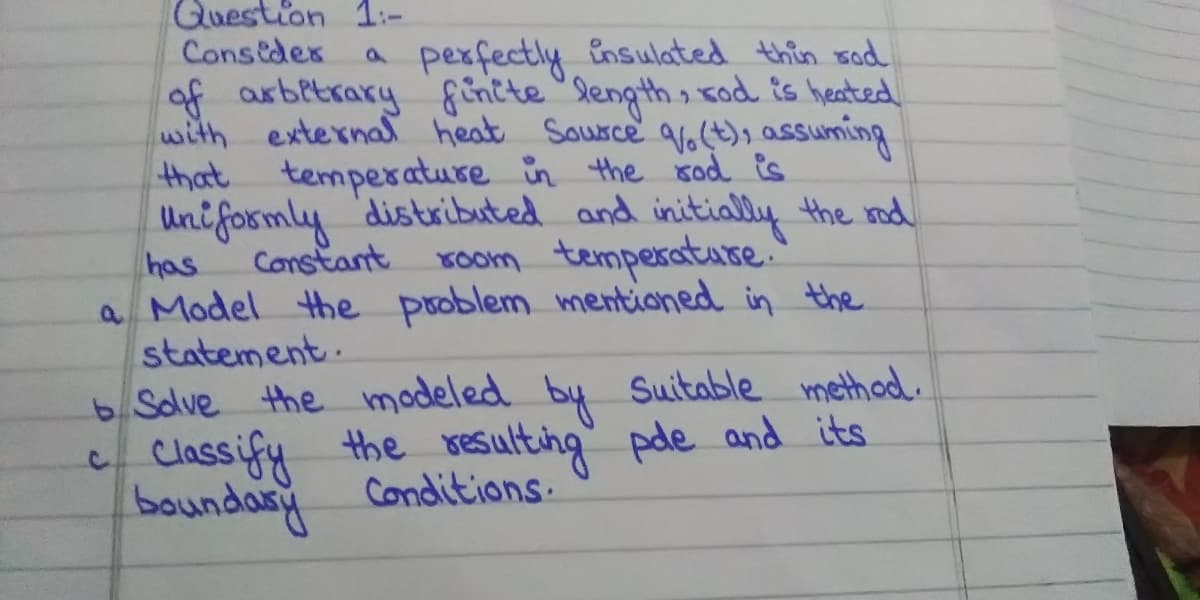 Question 1:-
Consider a perfectly insulated thin rod
of arbitrary finite length, rod is heated
with external heat source q₀(t), assuming
that temperature in the rod is
uniformly distributed and initially the rod
has constant room temperature.
a Model the problem mentioned in the
statement.
b Solve the modeled by suitable method.
c Classify the resulting pde and its
boundary conditions.